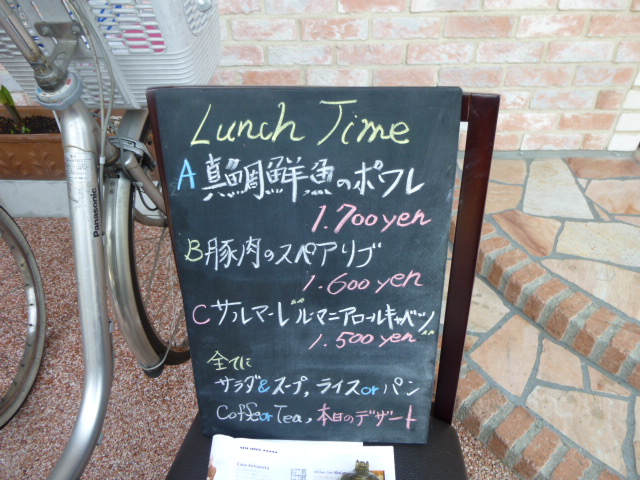 Lunch Time
A 真鯛鮮魚のポワレ
1.700yen
B 豚肉のスペアリブ
1.600yen
C サルマーレ ルーマニアロールキャベツ
1.500yen
全てに
サラダ&スープ, ライスorパン
CoffeeorTea, 本日のデザート
Panasonic